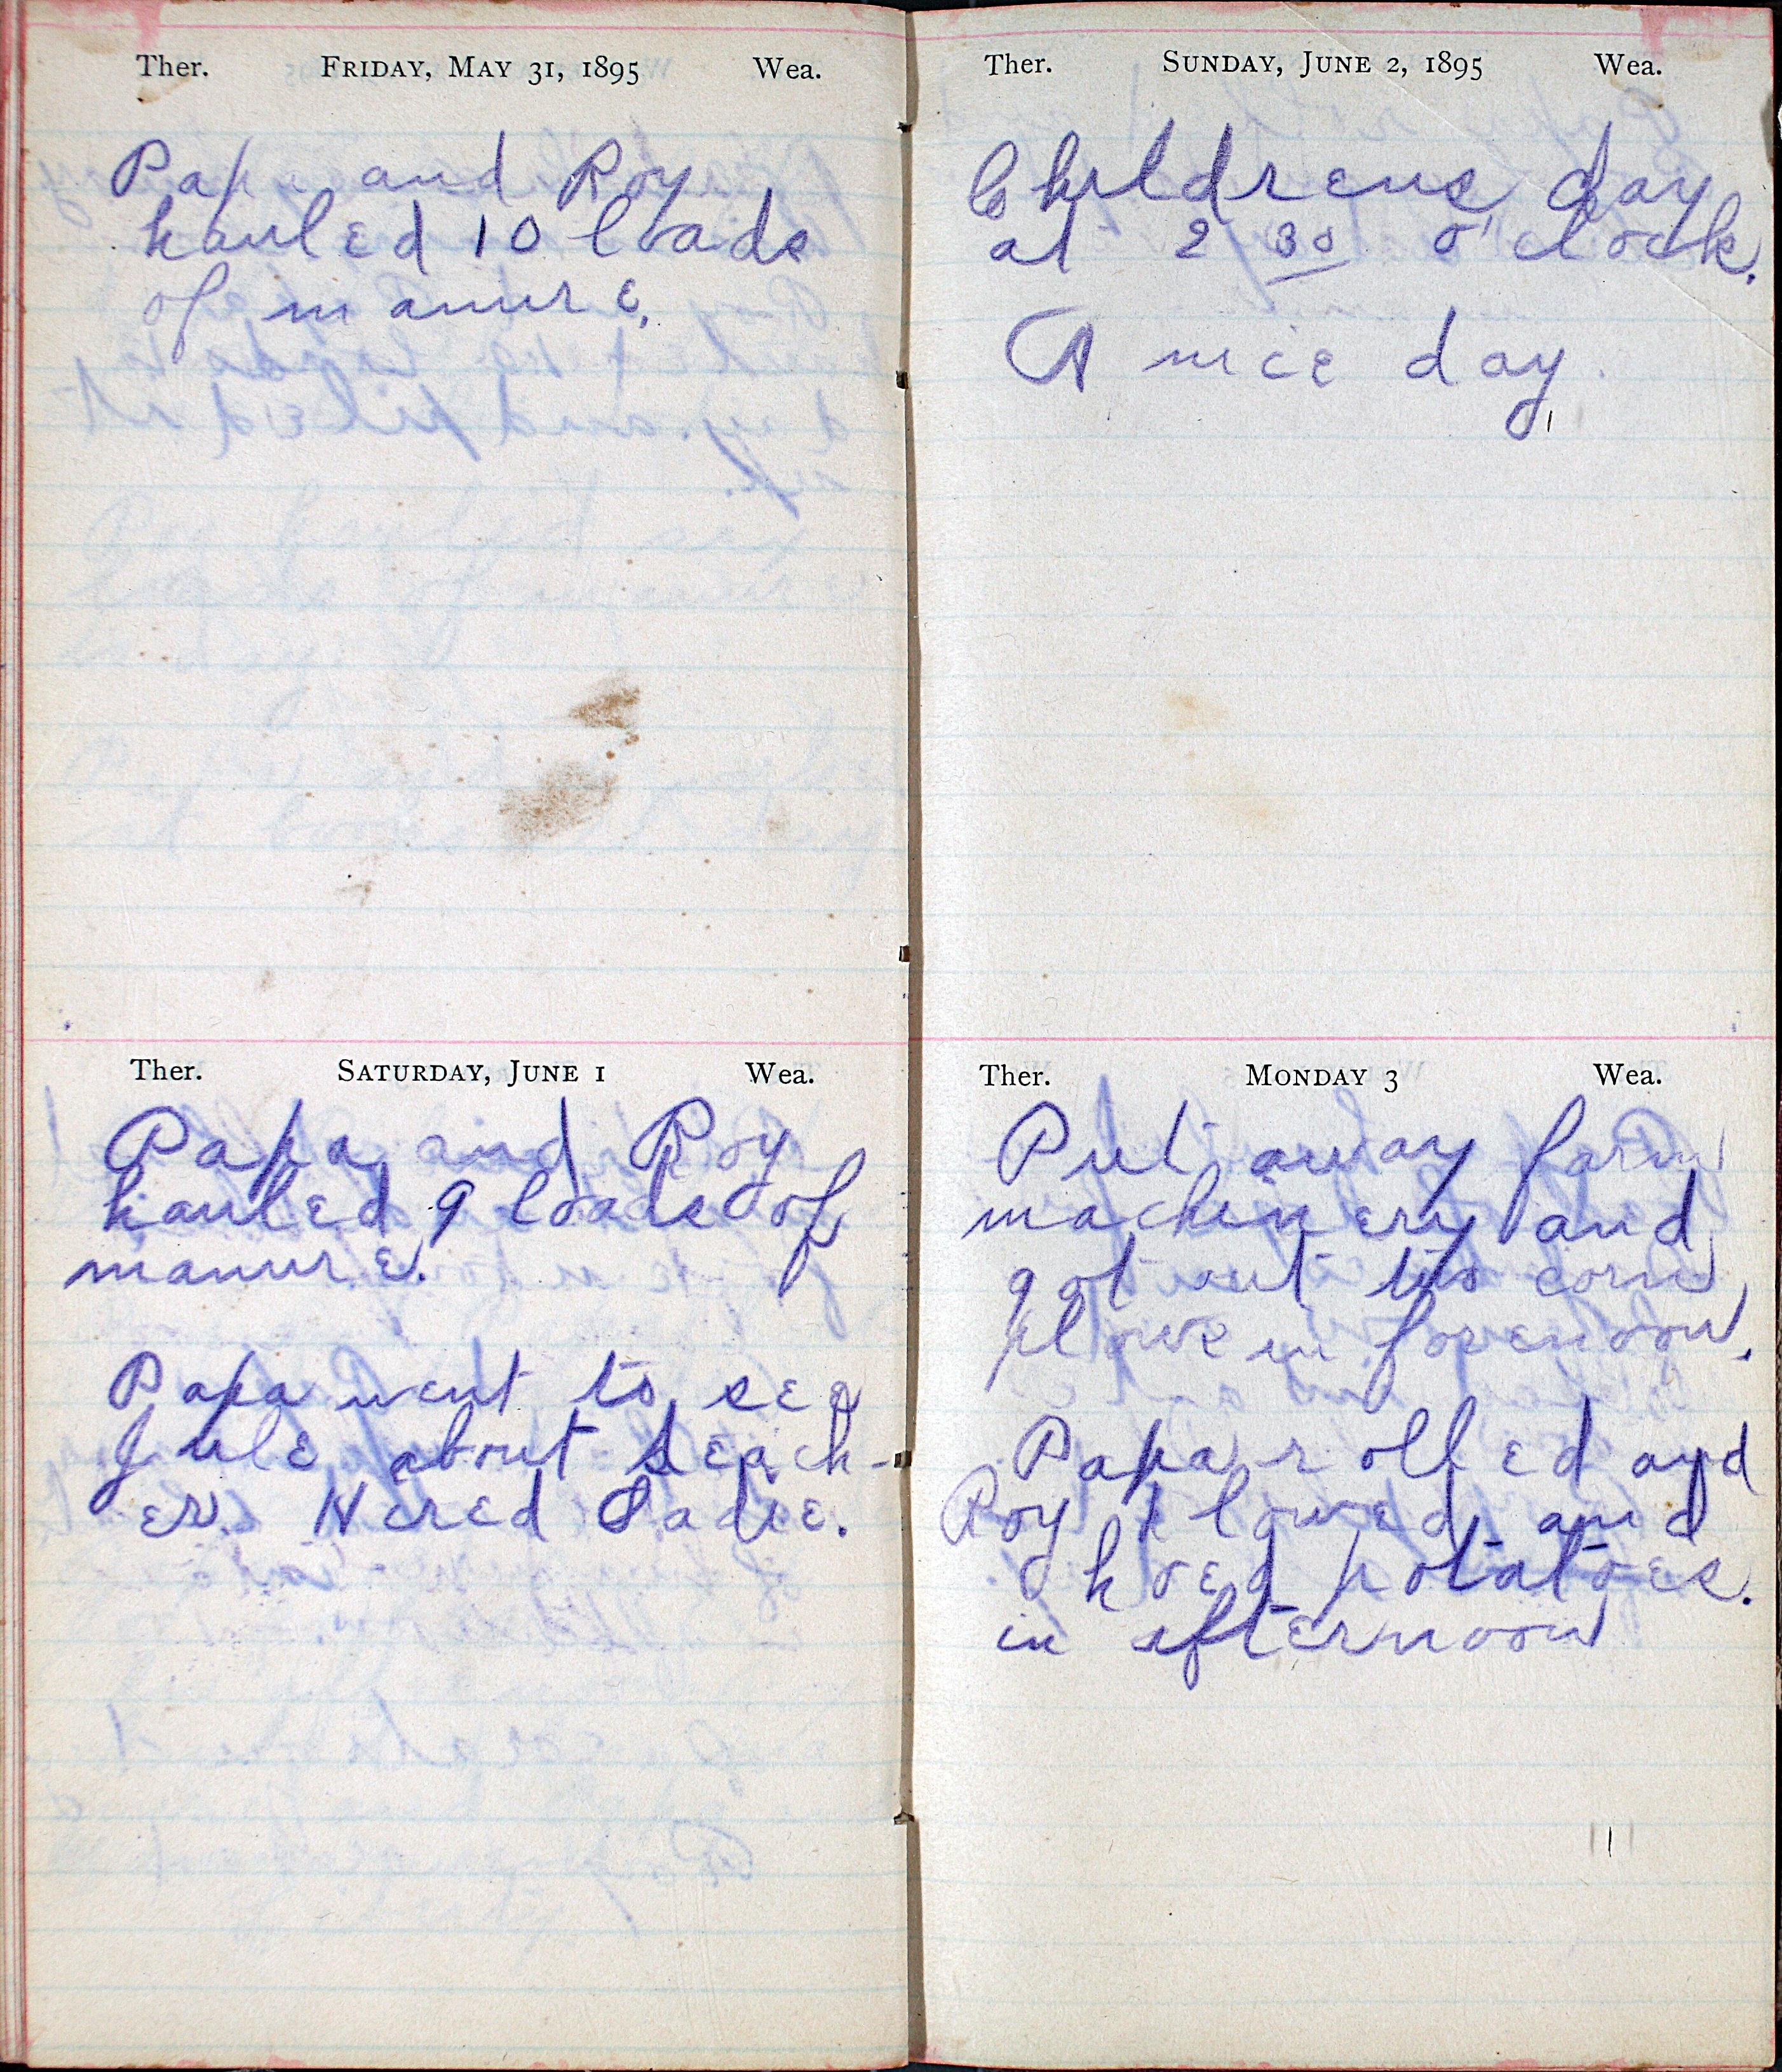 Ther. FRIDAY, MAY 31, 1895 Wea.
Papa and Roy
hauled 10 loads
of manure.
Ther. SATURDAY, JUNE 1 Wea.
Papa and Roy
hauled 9 loads of
manure.
Papa went to see
Jule about teach-
er. Hired Sadie.
Ther. SUNDAY, JUNE 2, 1895 Wea.
Childrens day
at 2 30 o'clock.
A nice day.
Ther. MONDAY 3 Wea.
Put away farm
machinery and
got out corn
plows in forenoon.
Papa rolled and
Roy plowed and
hoed potatoes.
in afternoon